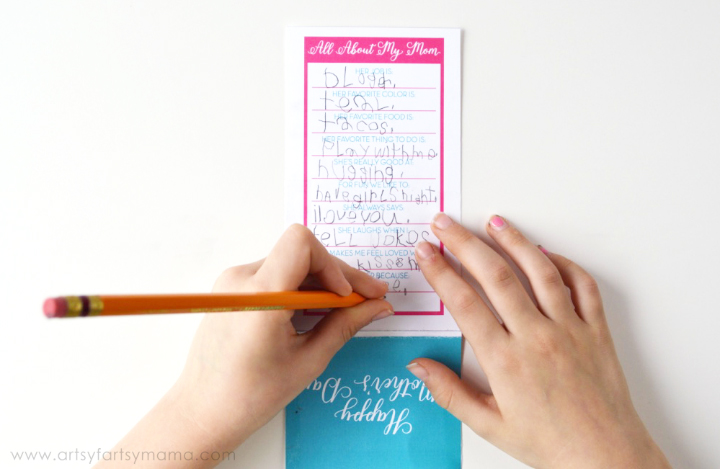 All About My Mom
HER JOB IS
bloger,
HER FAVORITE COLOR IS
teaL,
HER FAVORITE FOOD IS
tacos,
HER FAVORITE THING TO DO IS
PLay with me
SHE'S REALLY GOOD AT
hugging,
FOR FUN WE LIKE TO
have girLs night,
SHE ALWAYS SAYS
i love you,
SHE LAUGHS WHEN I
teLL jokes
MAKES ME FEEL LOVED
kisses
BECAUSE
Happy
Mother's Day
www.artsyfartsymama.com